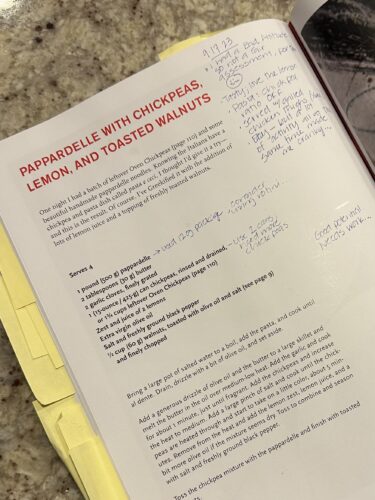 9.17.23
* I had a bad attitude
so not a fair
assessment, per se
Tasty, love the lemon
pasta: chickpea
ratio off
served w/ grilled
chicken thighs
+ salad – just a lot
of activity all at the
same time made
me cranky...
PAPPARDELLE WITH CHICKPEAS,
LEMON, AND TOASTED WALNUTS
One night I had a batch of leftover Oven Chickpeas (page 110) and some
beautiful handmade pappardelle noodles. Knowing the Italians have a
chickpea and pasta dish called pasta e ceci, I thought I'd give it a try—
and this is the result. Of course, I've Greekified it with the addition of
lots of lemon juice and a topping of freshly toasted walnuts.
Serves 4
1 pound (500 g) pappardelle → used 12 oz package
2 tablespoons (30 g) butter
2 garlic cloves, finely grated
1 (15-ounce / 425-g) can chickpeas, rinsed and drained, – use 2 cans
or 1½ cups leftover Oven Chickpeas (page 110)
need more
chickpeas
Zest and juice of 2 lemons
Extra virgin olive oil
Salt and freshly ground black pepper
½ cup (60 g) walnuts, toasted with olive oil and salt (see page 9)
and finely chopped
Good potential
needs work...
Bring a large pot of salted water to a boil, add the pasta, and cook until
al dente. Drain, drizzle with a bit of olive oil, and set aside.
Add a generous drizzle of olive oil and the butter to a large skillet and
melt the butter in the oil over medium-low heat. Add the garlic and cook
for about 1 minute, just until fragrant. Add the chickpeas and increase
the heat to medium. Add a large pinch of salt and cook until the chick-
peas are heated through and start to take on a little color, about 5 min-
utes. Remove from the heat and add the lemon zest, lemon juice, and a
bit more olive oil if the mixture seems dry. Toss to combine and season
with salt and freshly ground black pepper.
Toss the chickpea mixture with the pappardelle and finish with toasted